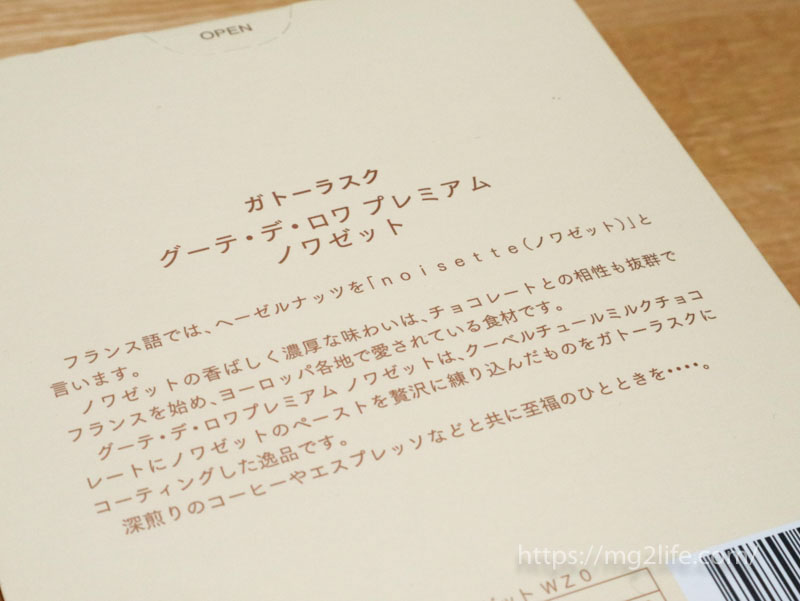 OPEN
ガトーラスク
グーテ・デ・ロワ プレミアム
ノワゼット
フランス語では、ヘーゼルナッツを「noisette(ノワゼット)」と
言います。
ノワゼットの香ばしく濃厚な味わいは、チョコレートとの相性も抜群で
フランスを始め、ヨーロッパ各地で愛されている食材です。
グーテ・デ・ロワプレミアム ノワゼットは、クーベルチュールミルクチョコ
レートにノワゼットのペーストを贅沢に練り込んだものをガトーラスクに
コーティングした逸品です。
深煎りのコーヒーやエスプレッソなどと共に至福のひとときを・・・・。
ット WZ0
https://mg2life.com/